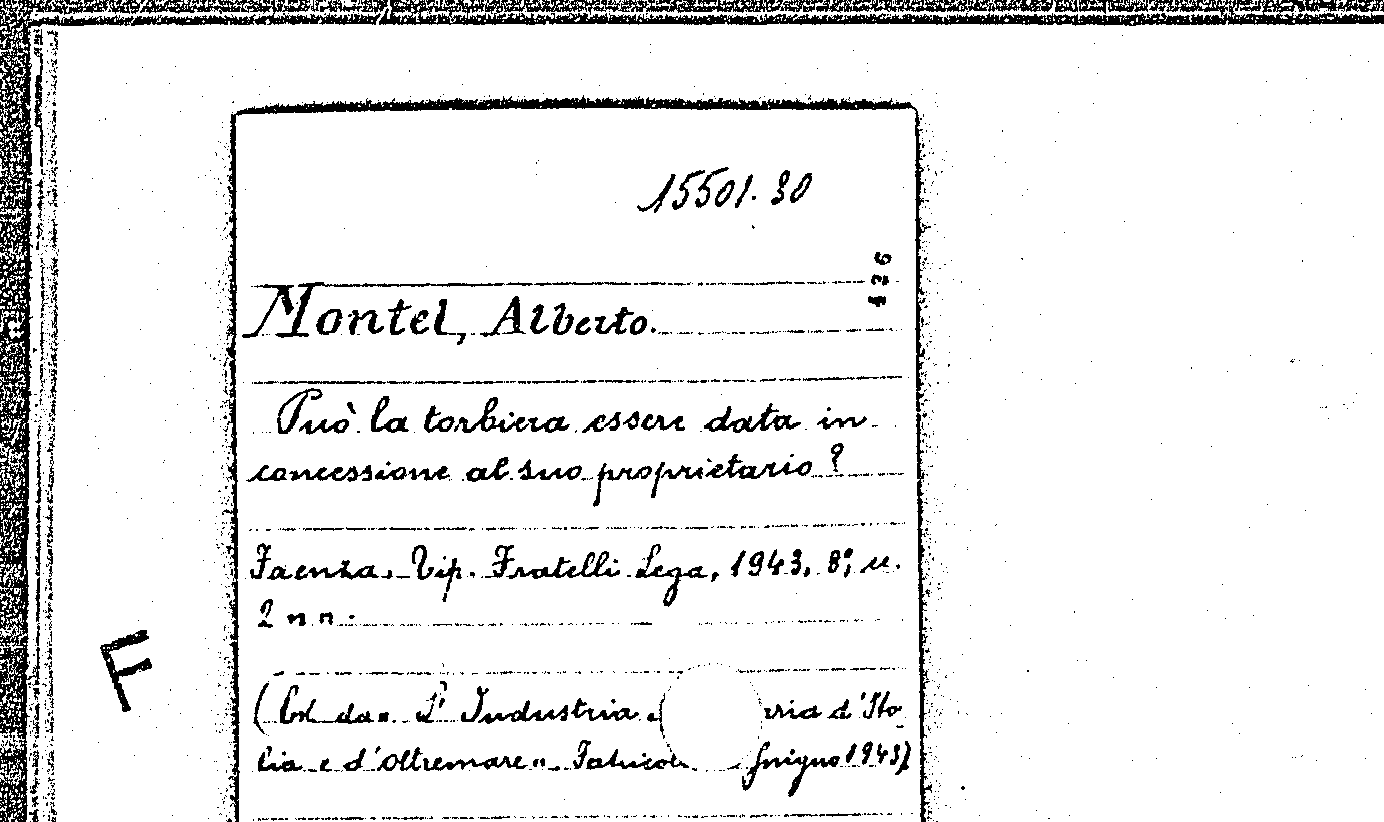 15501.30
436
Montel, Alberto.
Può la torbiera essere data in
concessione al suo proprietario?
Faenza. Tip. Fratelli Lega, 1943, 8°, u.
2 n n.
F
(Est. da "L'Industria d'Ita-
lia e d'oltremare". Giugno 1943)